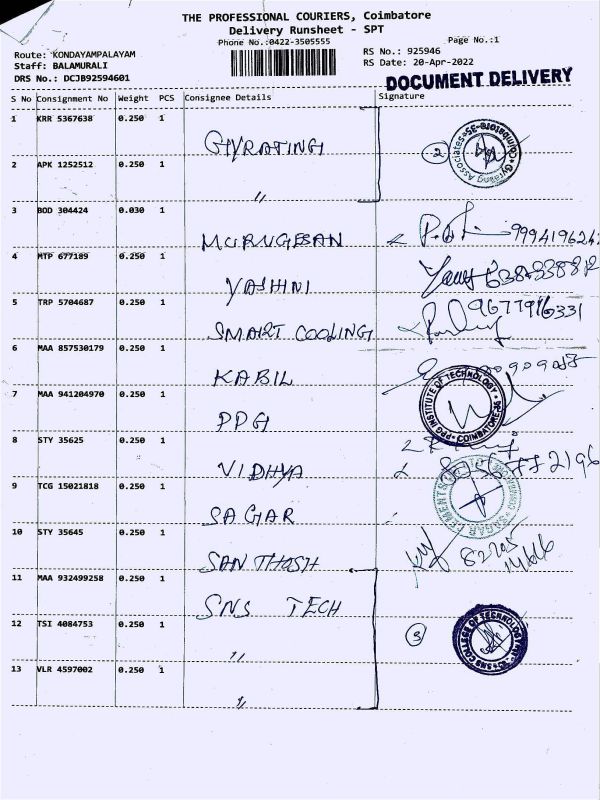 THE PROFESSIONAL COURIERS, Coimbatore
Delivery Runsheet - SPT
Phone No.:0422-3505555
Page No.:1
Route: KONDAYAMPALAYAM
RS No.: 925946
Staff: BALAMURALI
RS Date: 20-Apr-2022
DRS No.: DCJB92594601
DOCUMENT DELIVERY
S No Consignment No Weight PCS Consignee Details Signature
1 KRR 5367638 0.250 1 GYRATING
2 APK 1252512 0.250 1 "
2
Gyrating Associates Coimbatore-35
3 BOD 304424 0.030 1 MURUGESAN
4 MTP 677189 0.250 1 YASHINI
5 TRP 5704687 0.250 1 SMART COOLING 9677916331
6 MAA 857530179 0.250 1 KABIL
7 MAA 941204970 0.250 1 PPG
PPG INSTITUTE OF TECHNOLOGY COIMBATORE
8 STY 35625 0.250 1 VIDHYA
9 TCG 15021818 0.250 1 SAGAR
SAGAR CEMENTS
10 STY 35645 0.250 1 SANTHOSH
11 MAA 932499258 0.250 1 SNS TECH
12 TSI 4084753 0.250 1 "
3
SNS COLLEGE OF TECHNOLOGY
13 VLR 4597002 0.250 1 "